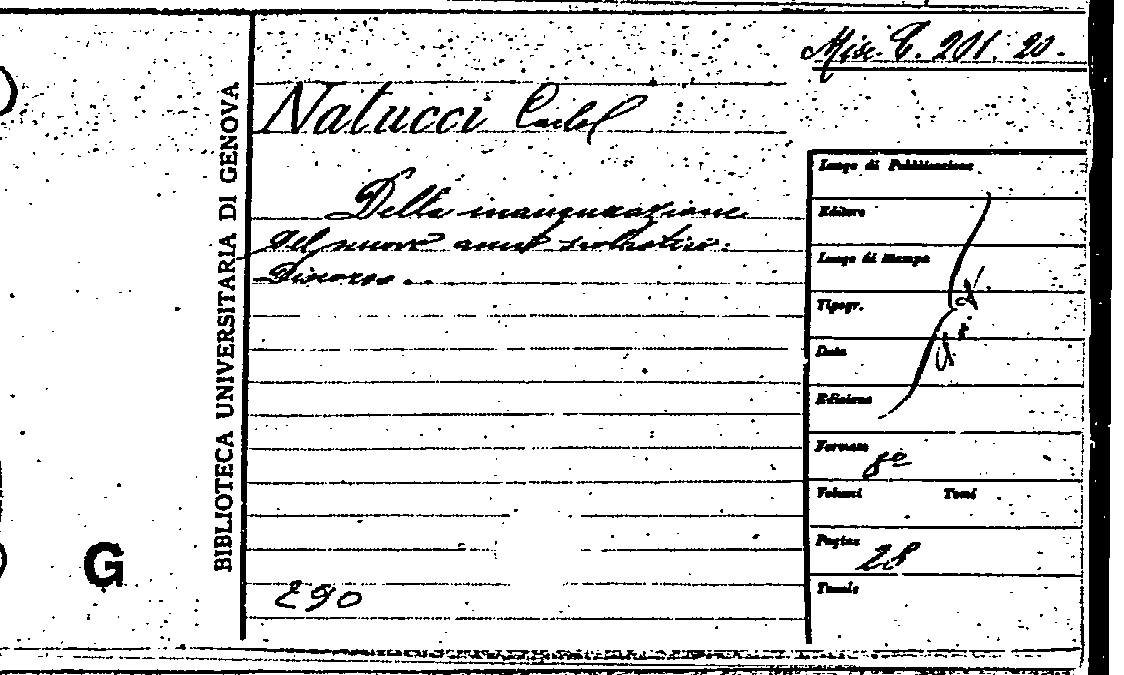 Misc. E. 201. 20.
Natucci Carlo
Della inaugurazione
del nuovo anno scolastico.
Discorso..
290
BIBLIOTECA UNIVERSITARIA DI GENOVA
G
Luogo di Pubblicazione
Editore
Luogo di Stampa
Tipogr.
Data
Edizione
Formato 8º
Volumi Tomi
Pagine 28